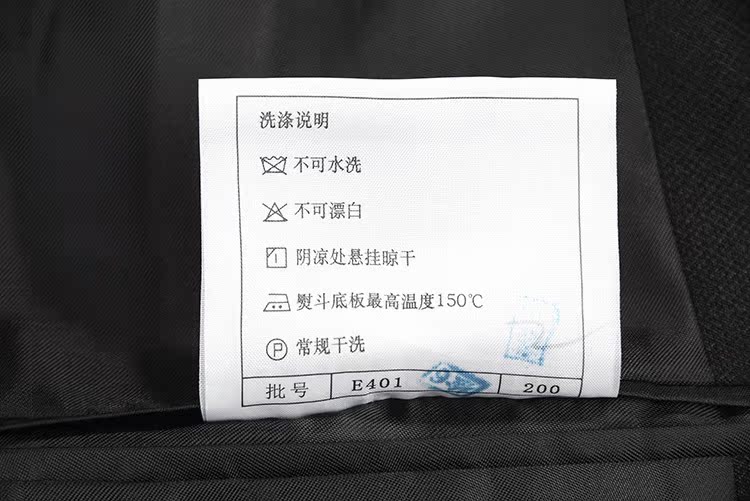 洗涤说明
不可水洗
不可漂白
阴凉处悬挂晾干
熨斗底板最高温度150℃
P 常规干洗
批号 E401 200